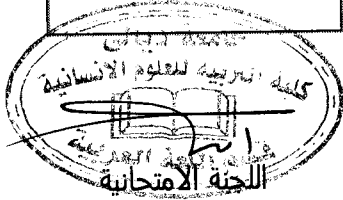 جامعة ديالى
كلية التربية للعلوم الانسانية
قسم اللغة العربية
اللجنة الامتحانية